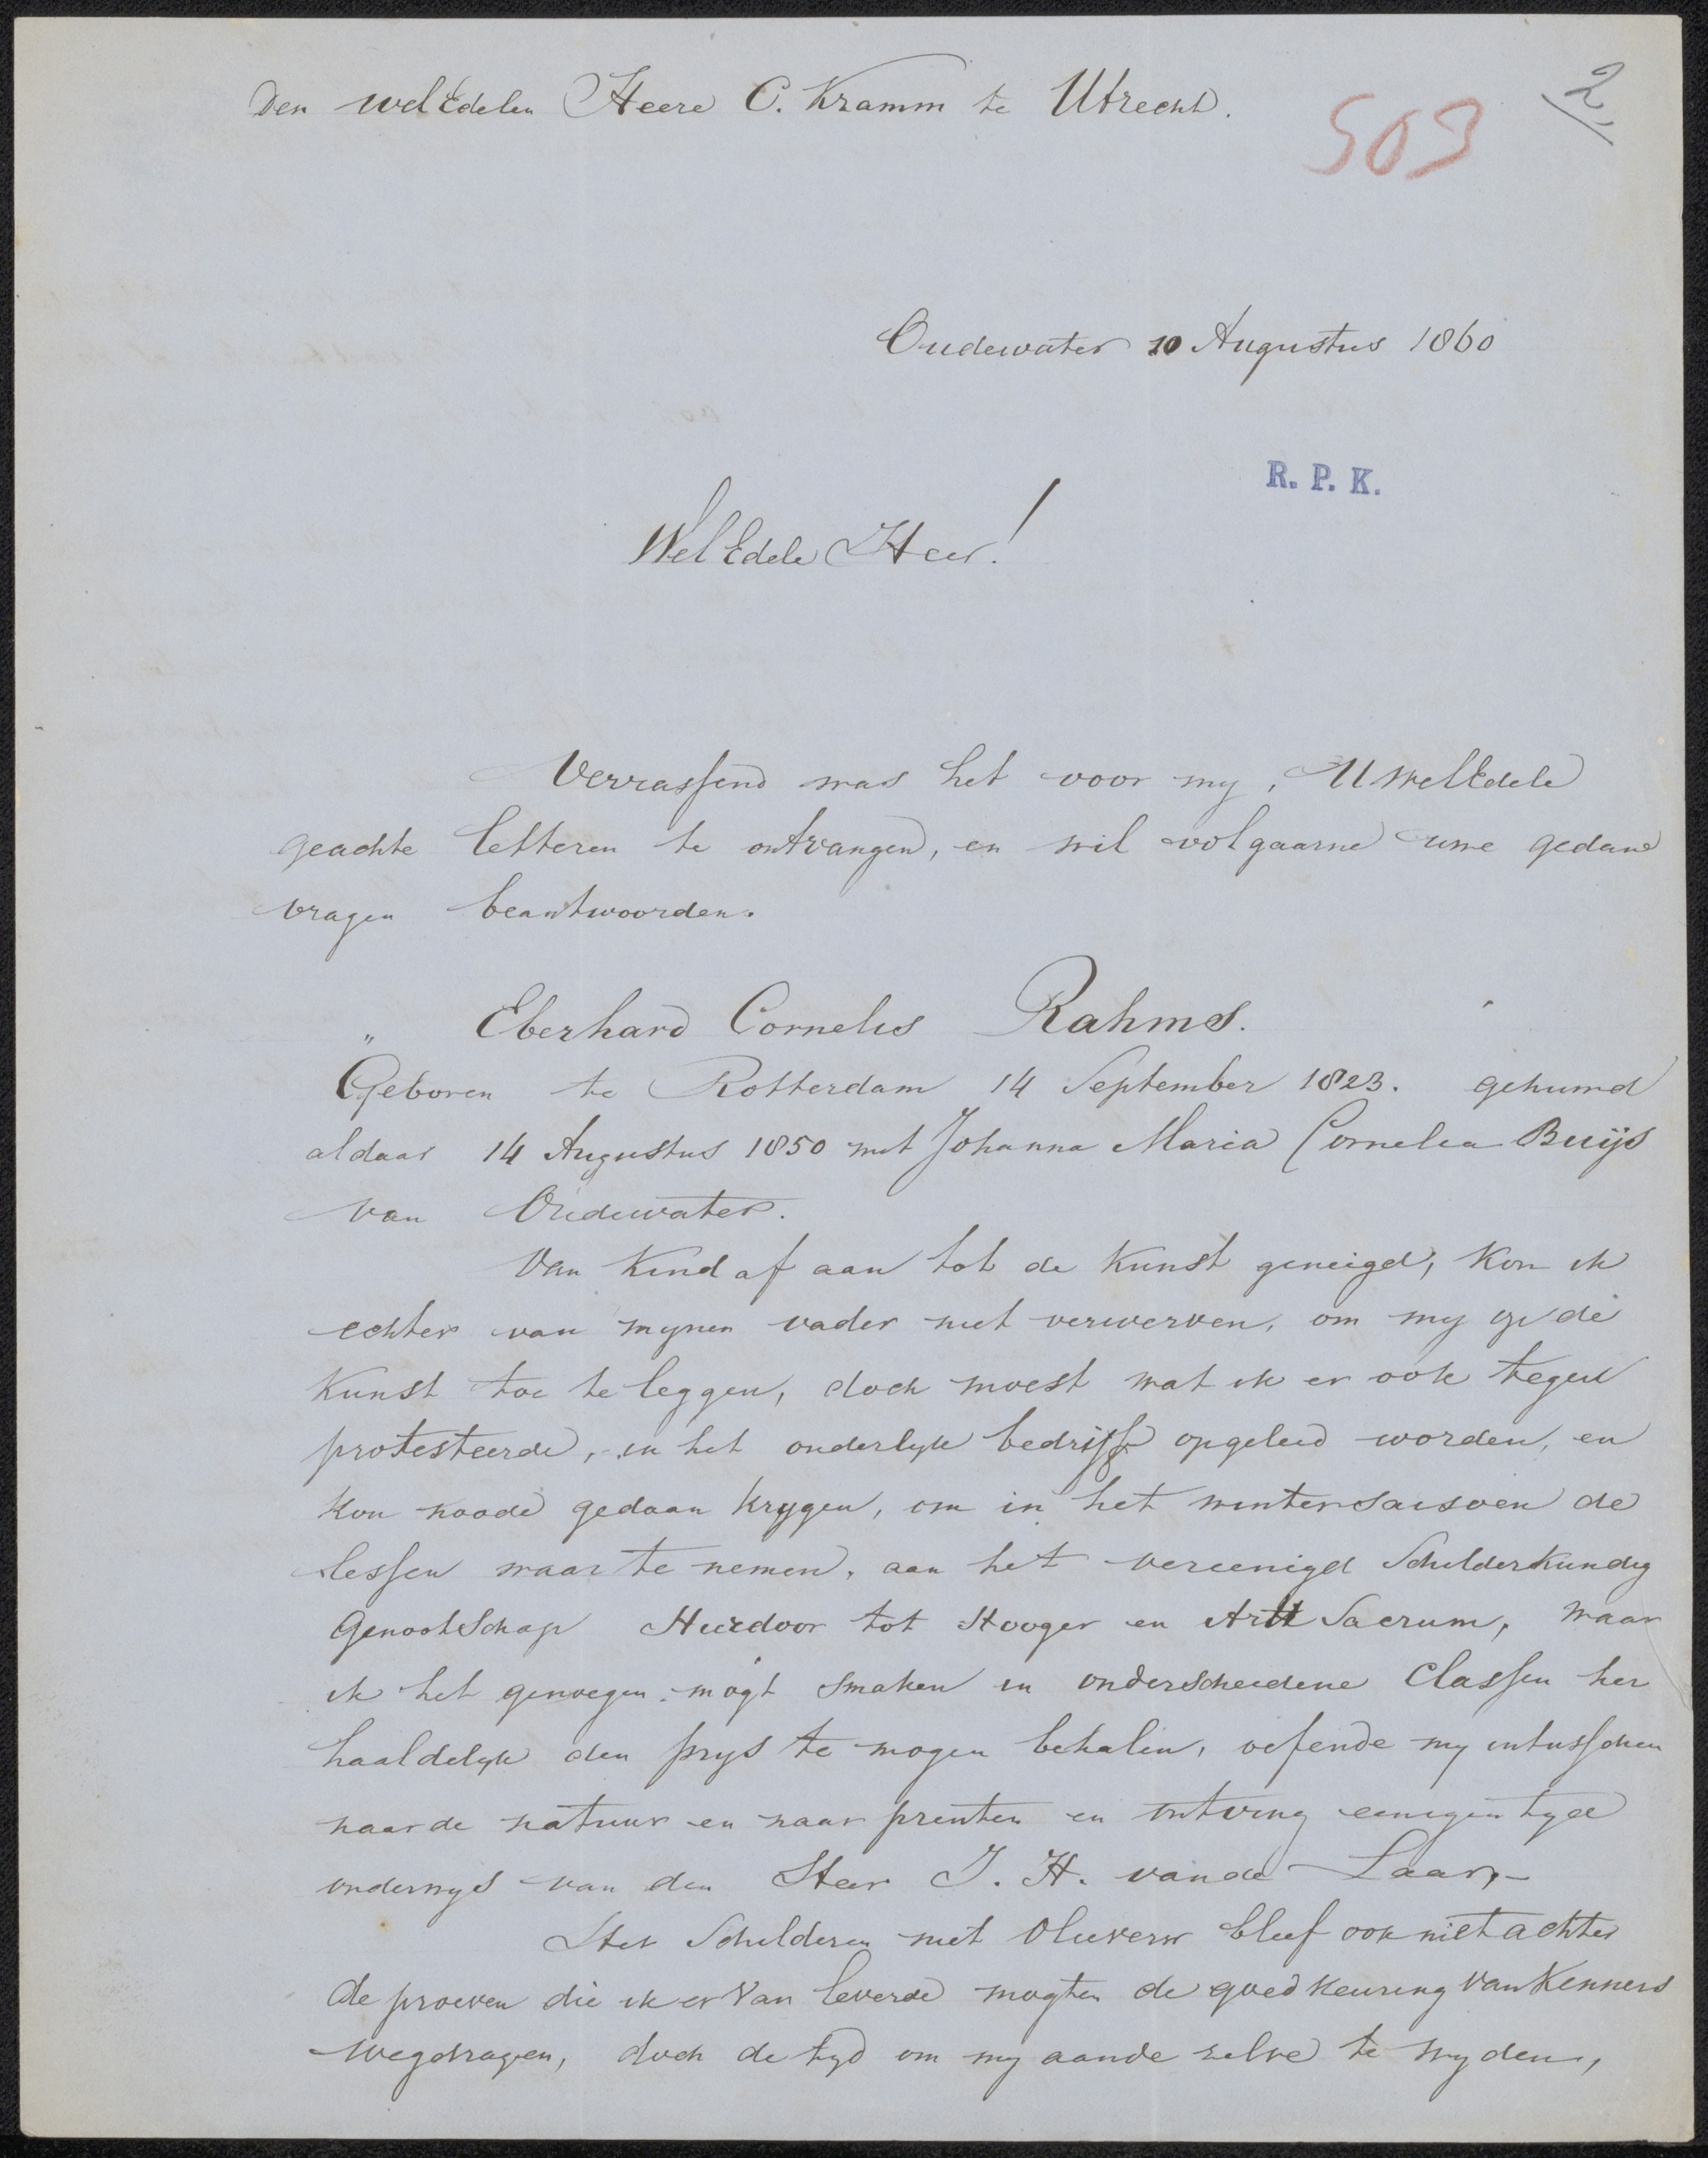 Den welEdelen Heere C. Kramm te Utrecht.
503
2,
Oudewater 10 Augustus 1860
R. P. K.
WelEdele Heer!
Verrassend was het voor my, UwelEdele
geachte letteren te ontvangen, en wil volgaarne uwe gedane
vragen beantwoorden.
„ Eberhard Cornelis Rahms.
Geboren te Rotterdam 14 September 1823. gehuwd
aldaar 14 Augustus 1850 met Johanna Maria Cornelia Buijs
van Oudewater.
Van kind af aan tot de kunst geneigd, kon ik
echter van mynen vader niet verwerven, om my op de
kunst toe te leggen, doch moest wat ik er ook tegen
protesteerde, in het ouderlyk bedryf opgeleid worden, en
kon noode gedaan krygen, om in het wintersaisoen de
lessen waar te nemen, aan het vereenigd Schilderkundig
Genootschap Hierdoor tot Hooger en Arti Sacrum, waar
ik het genoegen mogt smaken in onderscheidene Classen her
haaldelyk den prys te mogen behalen, oefende my intusschen
naar de natuur en naar prenten en ontving eenigen tyd
onderwys van den Heer J. H. van de Laar,-
Het Schilderen met Olieverw bleef ook niet achter
de proeven die ik er van leverde mogten de goedkeuring van Kenners
wegdragen, doch de tyd om my aan de zelve te wyden,